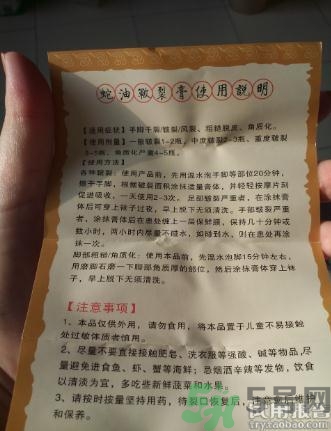 蛇油皲裂膏使用說明
【适用症状】手脚干裂/皲裂/风裂、粗糙脱皮、角质化。
【使用剂量】一般皲裂1-2瓶，中度皲裂2-3瓶，重度皲裂
3-5瓶，角质化严重4-5瓶。
【使用方法】
各种皲裂：使用产品前，先用温水泡手脚等部位20分钟，
擦干手脚，根据皲裂面积涂抹适量膏体，并轻轻按摩片刻
促进吸收，一天使用2-3次。足部皲裂严重者，在涂抹膏
体后可穿上袜子过夜，早上脱下无须清洗。手部皲裂严重
者，涂抹膏体后在患处缠上一层保鲜膜，保持几十分钟或
数小时，两小时内尽量不碰水，如碰到水，则在患处再涂
抹一次。
脚部粗糙/角质化：使用本品前，先温水泡脚15分钟左右，
用磨脚石磨一下脚部角质厚的部位，然后涂抹膏体穿上袜
子，早上脱下无须清洗。
【注意事项】
1、本品仅供外用，请勿食用，将本品置于儿童不易接触
处过敏体质者慎用。
2、尽量不要直接接触肥皂、洗衣服等强酸、碱等物品,尽
量避免进食鱼、虾、蟹等海鲜；忌烟酒辛辣等发物，饮食
以清淡为宜，多吃些新鲜蔬菜和水果。
3、请按时按量坚持用药，待裂口恢复后，注意愈后维护
和保养。
5号网
试用报告
try.taobao.com